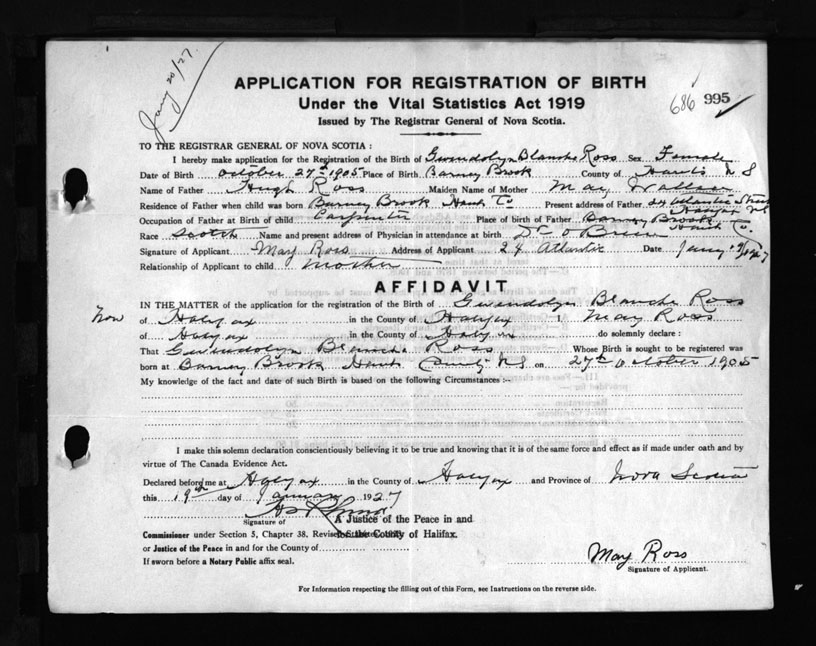 Jany 20/27.
APPLICATION FOR REGISTRATION OF BIRTH
Under the Vital Statistics Act 1919
686 995
Issued by The Registrar General of Nova Scotia.
TO THE REGISTRAR GENERAL OF NOVA SCOTIA :
I hereby make application for the Registration of the Birth of Gwendolyn Blanche Ross Sex Female
Date of Birth October 27th 1905 Place of Birth Barney Brook County of Hants N S
Name of Father Hugh Ross Maiden Name of Mother May Wallace
Residence of Father when child was born Barney Brook Hants Co Present address of Father 24 Atlantic Street
Halifax N S
Occupation of Father at Birth of child Carpenter Place of birth of Father Barney Brook
Hants Co.
Race Scotch Name and present address of Physician in attendance at birth Dr O Brien
Signature of Applicant May Ross Address of Applicant 24 Atlantic Date Jany
Relationship of Applicant to child mother
AFFIDAVIT
IN THE MATTER of the application for the registration of the Birth of Gwendolyn Blanche Ross
now of Halifax in the County of Halifax May Ross
of Halifax in the County of Halifax do solemnly declare :
That Gwendolyn Blanche Ross Whose Birth is sought to be registered was
born at Barney Brook Hants County N S on 27th October 1905
My knowledge of the fact and date of such Birth is based on the following Circumstances :-
I make this solemn declaration conscientiously believing it to be true and knowing that it is of the same force and effect as if made under oath and by
virtue of The Canada Evidence Act.
Declared before me at Halifax in the County of Halifax and Province of Nova Scotia
this 19th day of January 1927
Signature of A Justice of the Peace in and
Commissioner under Section 3, Chapter 38. Revised for the County of Halifax.
or Justice of the Peace in and for the County of
If sworn before a Notary Public affix seal.
May Ross
Signature of Applicant.
For Information respecting the filling out of this Form, see Instructions on the reverse side.